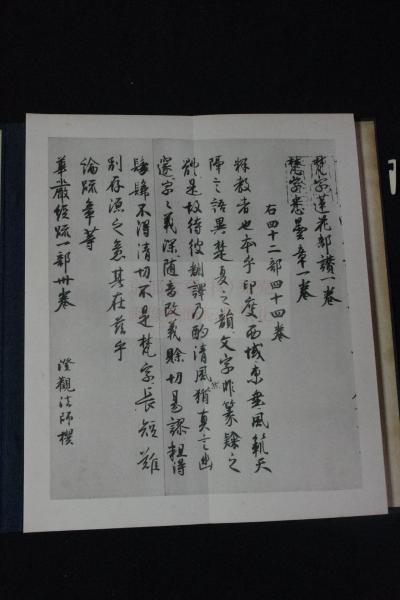 梵字蓮花部讃一卷
梵字悉曇章一卷
右四十二部四十四卷
釋教者也本乎印度西域東垂風範天
隔言語異楚夏之韻文字非篆隸之
體是故待彼翻譯乃酌清風然猶真言幽
邃字々義深隨音改義賒切易謬粗得
髣髴不得清切不是梵字長短難
別存源之意其在茲乎
論疏章等
華嚴經疏一部卅卷 澄觀法師撰